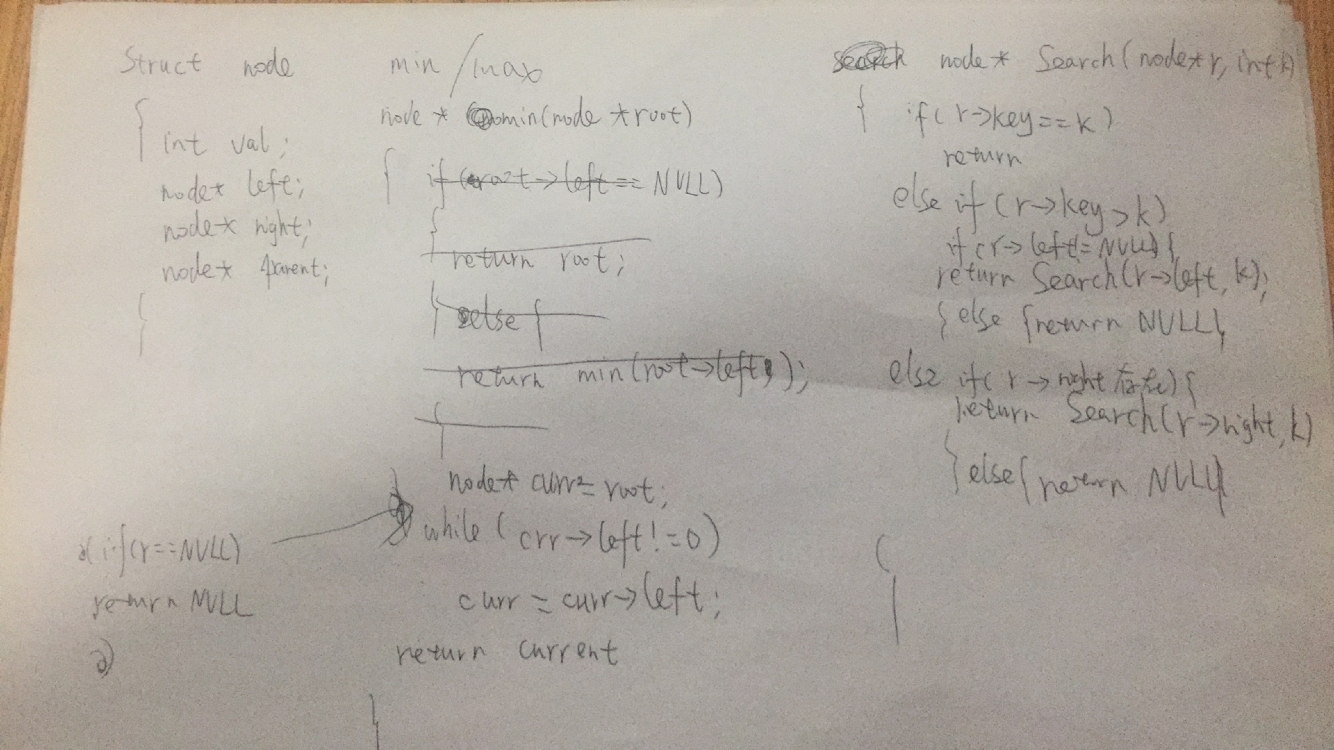 Struct node
{
int val;
node* left;
node* right;
node* parent;
}
min/max
node * min(node *root)
{ if (root->left == NULL)
{
return root;
} else {
return min(root->left);
}
node* curr = root;
while ( crr->left != 0)
curr = curr->left;
return current
}
if(r==NULL)
return NULL
search node* Search(node*r, int k)
{ if( r->key==k)
return
else if (r->key>k)
if(r->left!=NULL){
return Search(r->left, k);
} else {return NULL}
else if( r->right 存在) {
return Search(r->right, k)
} else{ return NULL}